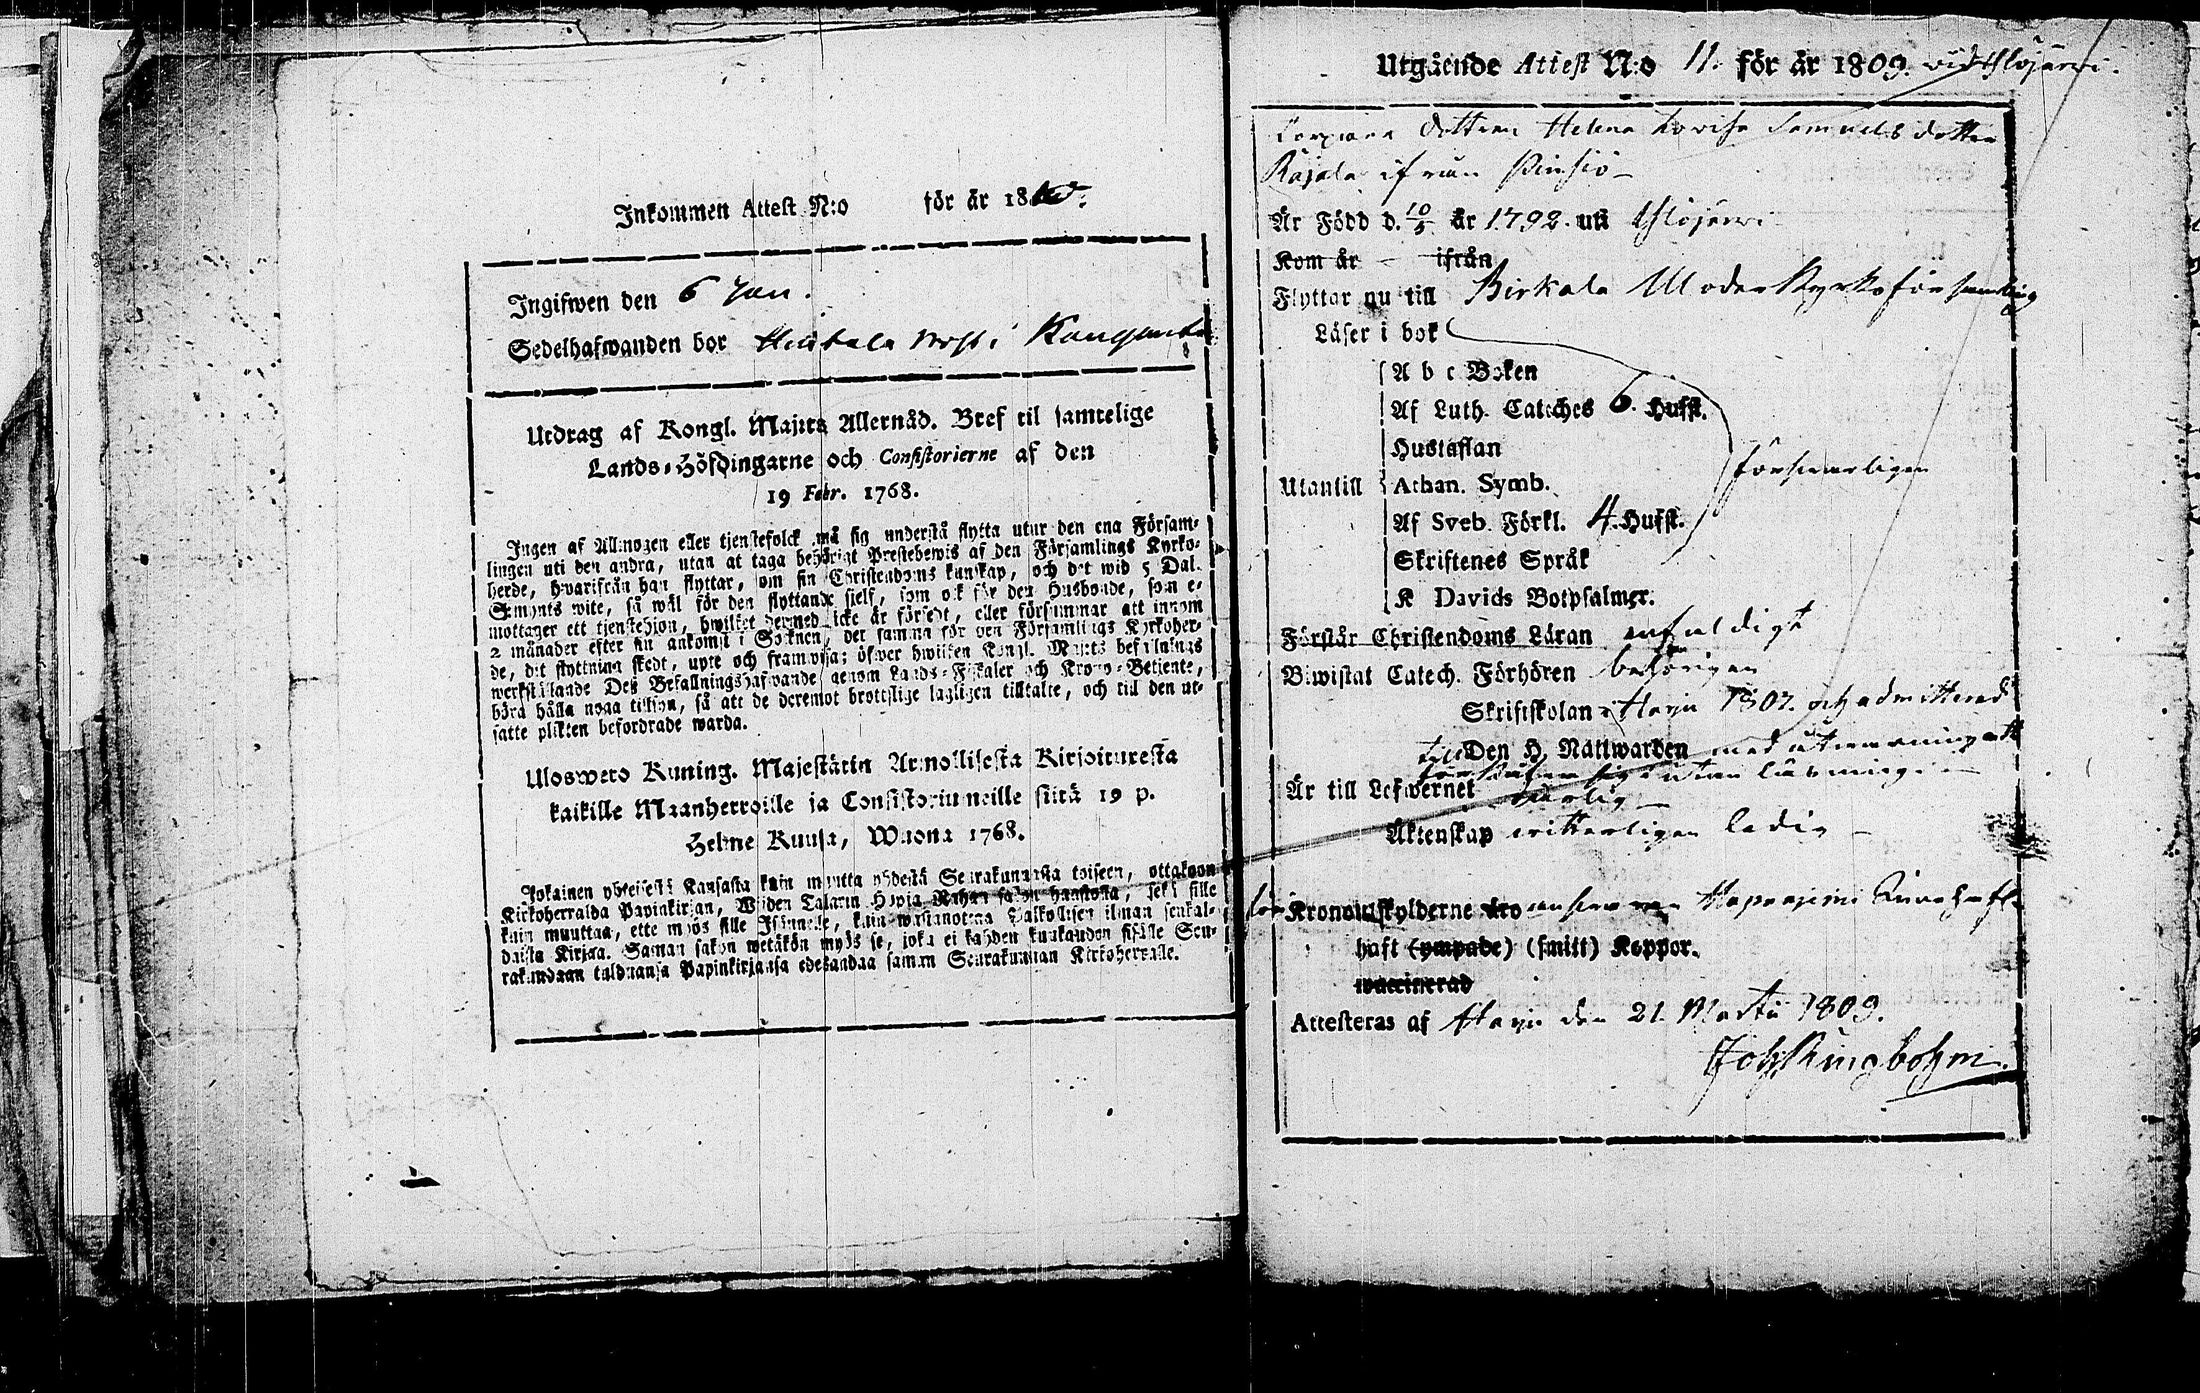 Inkommen Attest N:o för år 1810.
Ingifwen den 6 Jan.
Sedelhafwanden bor i
Utdrag af Kongl. Majtts Allernåd. Bref til samtelige
Lands-Höfdingarne och Consistorierne af den
19 Febr. 1768.
Ingen af Allmogen eller tjenstefolck må sig understå flytta utur den ena Församlingen
lingen uti den andra, utan at taga behörigt Prestebewis af den Församlings Kyrko-
herde, hwarifrån han flyttar, om sin Christendoms kunskap, och det wid 5 Dal.
S:mynts wite, så wäl för den flyttande sielf, som ock för den Husbonde, som e-
mottager ett tjenstehjon, hwilket dermed icke är försedt, eller försummar att innom
2 månader efter sin ankomst i Socknen, det samma för den Församlings Kyrkoher-
de, dit flyttning skedt, upte och framwisa; öfwer hwilken Kongl. Majtts befallnings
werkställande Des Befallningshafwande genom Lands-Fiskaler och Krono-Betiente,
böra hålla noga tillsyn, så att de deremot brottslige lagligen tilltalte, och till den ut-
satte plikten befordrade warda.
Ulosweto Kuning. Majestätin Armollisesta Kirjoituresta
kaikille Maanherroille ja Consistoriumeille siitä 19 p.
Helme Kuusa, Wuona 1768.
Jokainen yhteisestä Kansasta kuin muutta yhdestä Seurakunnasta toiseen, ottakoon
Kirkoherralda Papinkirjan, Wijden Talarin Hopia Rahan sakon haastolla, sekä sille
kuin muuttaa, ette myös sille Isännelle, kuin wastanottaa Palkollisen ilman senkal-
daista Kirjaa. Saman sakon wetäkön myös se, joka ei kahden kuukauden sisälle Seu-
rakundaan tulduansa Papinkirjansa edesandaa saman Seurakunnan Kirkoherralle.
Utgående Attest N:o 11. för år 1809.
dottren Helena Lovisa Samuels dotter
Rajala ifrån Pinsiö
Är Född d. 10/5 år 1792. uti Ylöjärvi
Kom år ifrån
Flyttar nu till Birkala Moder Kyrkoförsamling
Läser i bok
A b c Boken
Af Luth. Cateches 6. Hufst.
Hustaflan
försvarligen
Utantill Athan. Symb.
Af Sveb. Förkl. 4. Hufst.
Skriftenes Språk
K Davids Botpsalmer.
Förstår Christendoms Läran enfaldigt
Biwistat Catech. Förhören behörigen
Skriftskolan i Harju 1807. och admitterad
till Den H. Nattwarden med
Är till Lefwernet ärlig
Äktenskap witterligen ledig
Kronoutskylderne
haft (ympade) (smitt) Koppor.
waccinerad
Attesteras af Harju den 21. Martii 1809.
Joh. Ringbohm.